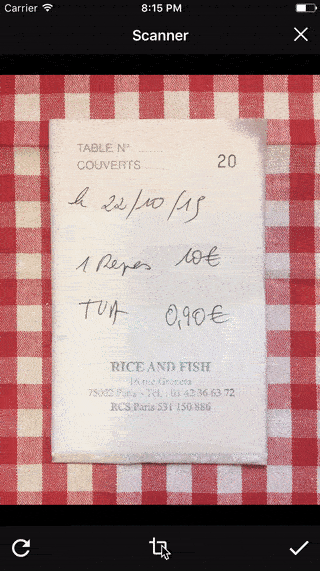 Carrier 8:15 PM
Scanner
TABLE N° ..........
COUVERTS ..........
20
le 22/10/15
1 Repas 10€
TVA 0,90€
RICE AND FISH
75002 Paris - Tél. : 01 42 36 63 72
RCS Paris 531 150 886